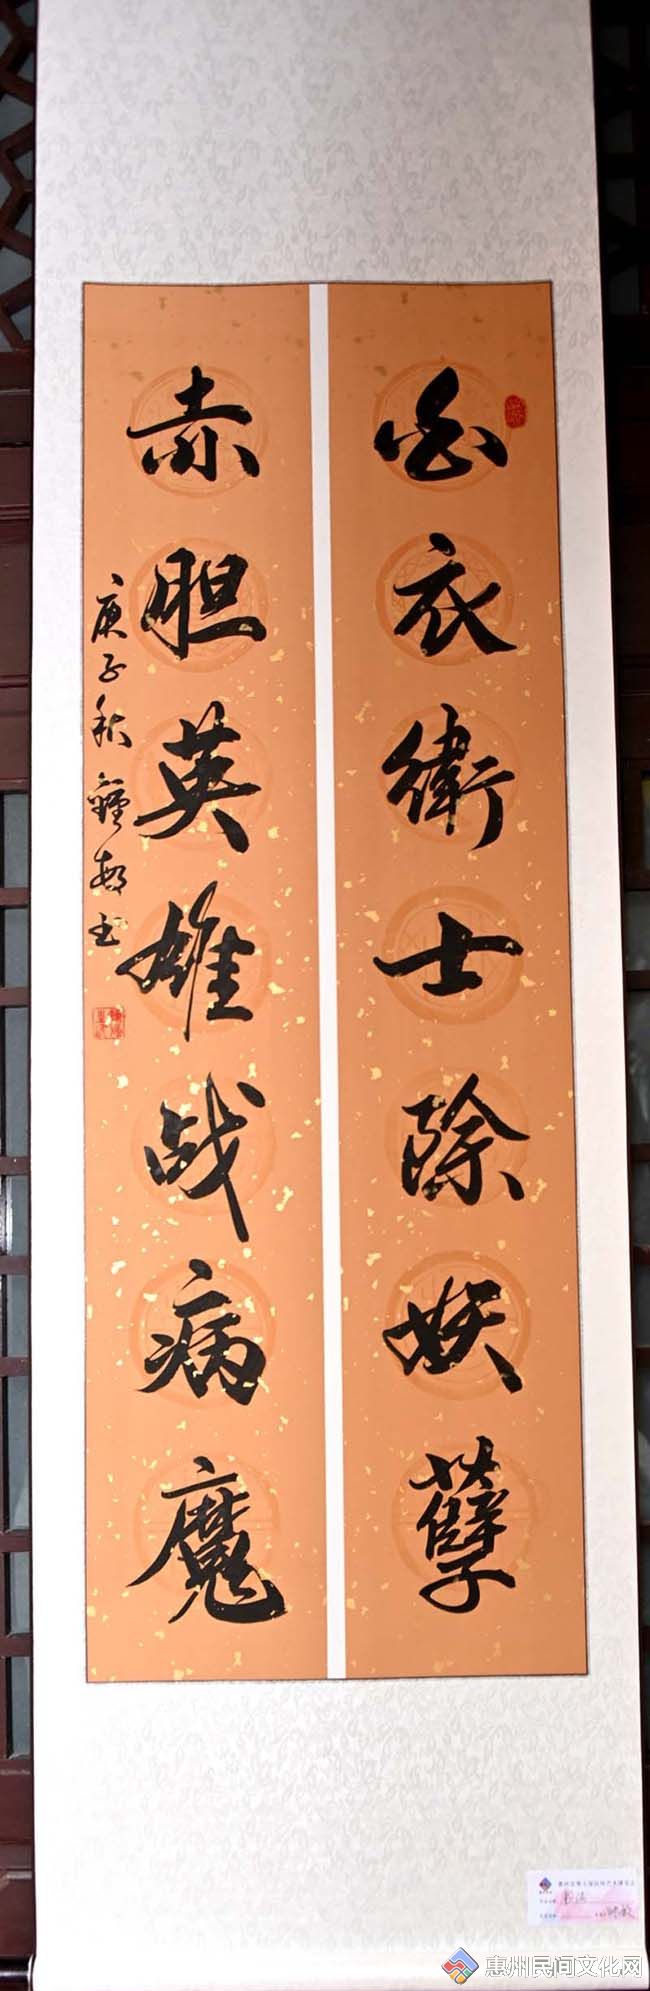 白衣衛士除妖孽
赤胆英雄战病魔
庚子秋 鐘敏书
书法
惠州民间文化网